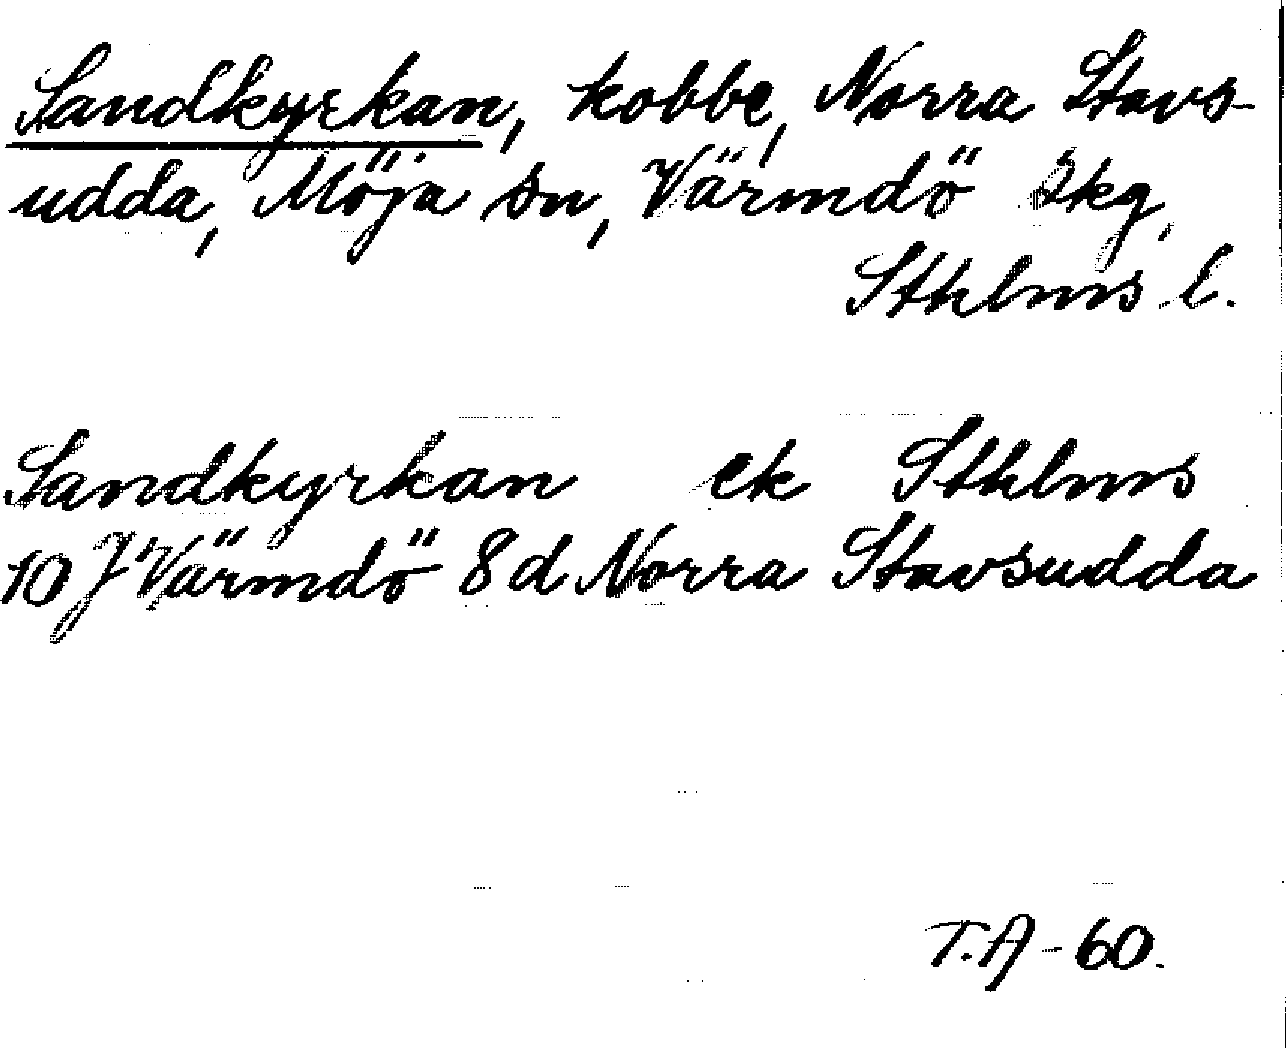 Sandkyrkan, kobbe, Norra Stavs-
udda, Möja sn, Värmdö skg,
Sthlms l.
Sandkyrkan ek Sthlms
10 J Värmdö 8 d Norra Stavsudda
T.A-60.